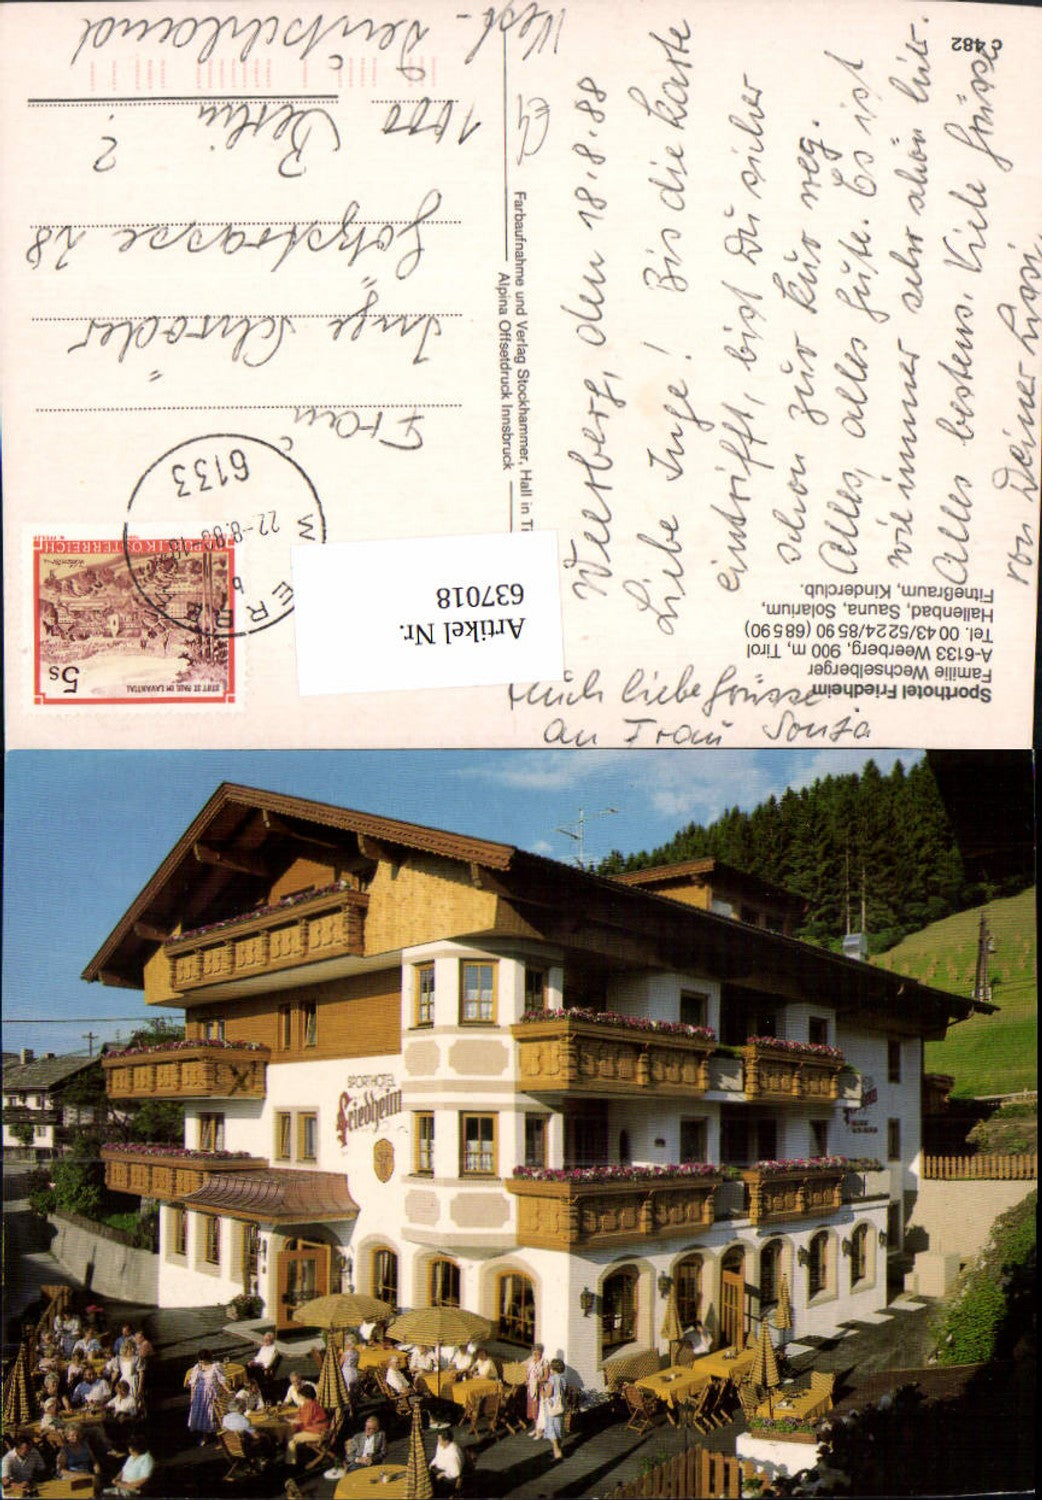 Weerberg, den 18.8.88
Liebe Inge! Bis die Karte
eintrifft, bist Du sicher
schon zur Kur weg.
Alles, alles Gute. Es ist
wie immer sehr schön hier.
Alles bestens. Viele Grüsse
von Deiner
Auch liebe Grüsse
an Frau Sonja
Sporthotel Friedheim
Familie Wechselberger
A-6133 Weerberg, 900 m, Tirol
Tel. 00 43/52 24/85 90 (68 5 90)
Hallenbad, Sauna, Solarium,
Fitneßraum, Kinderclub.
c 482
Farbaufnahme und Verlag Stockhammer, Hall in
Alpina Offsetdruck Innsbruck
Artikel Nr.
637018
5s
STIFT ST. PAUL IM LAVANTTAL
REPUBLIK ÖSTERREICH
6133
22.-8.88-15
Frau
Inge Schröder
28
1000 Berlin 2
West-Deutschland
SPORTHOTEL
Friedheim